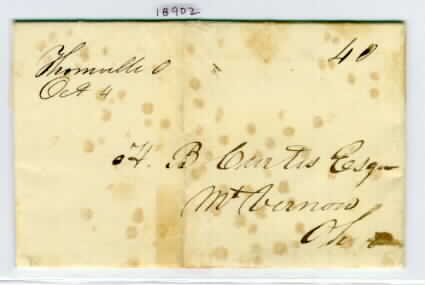 18902
Thornville O
Oct 4
40
H. B Curtis Esqr
Mt Vernon
Oh